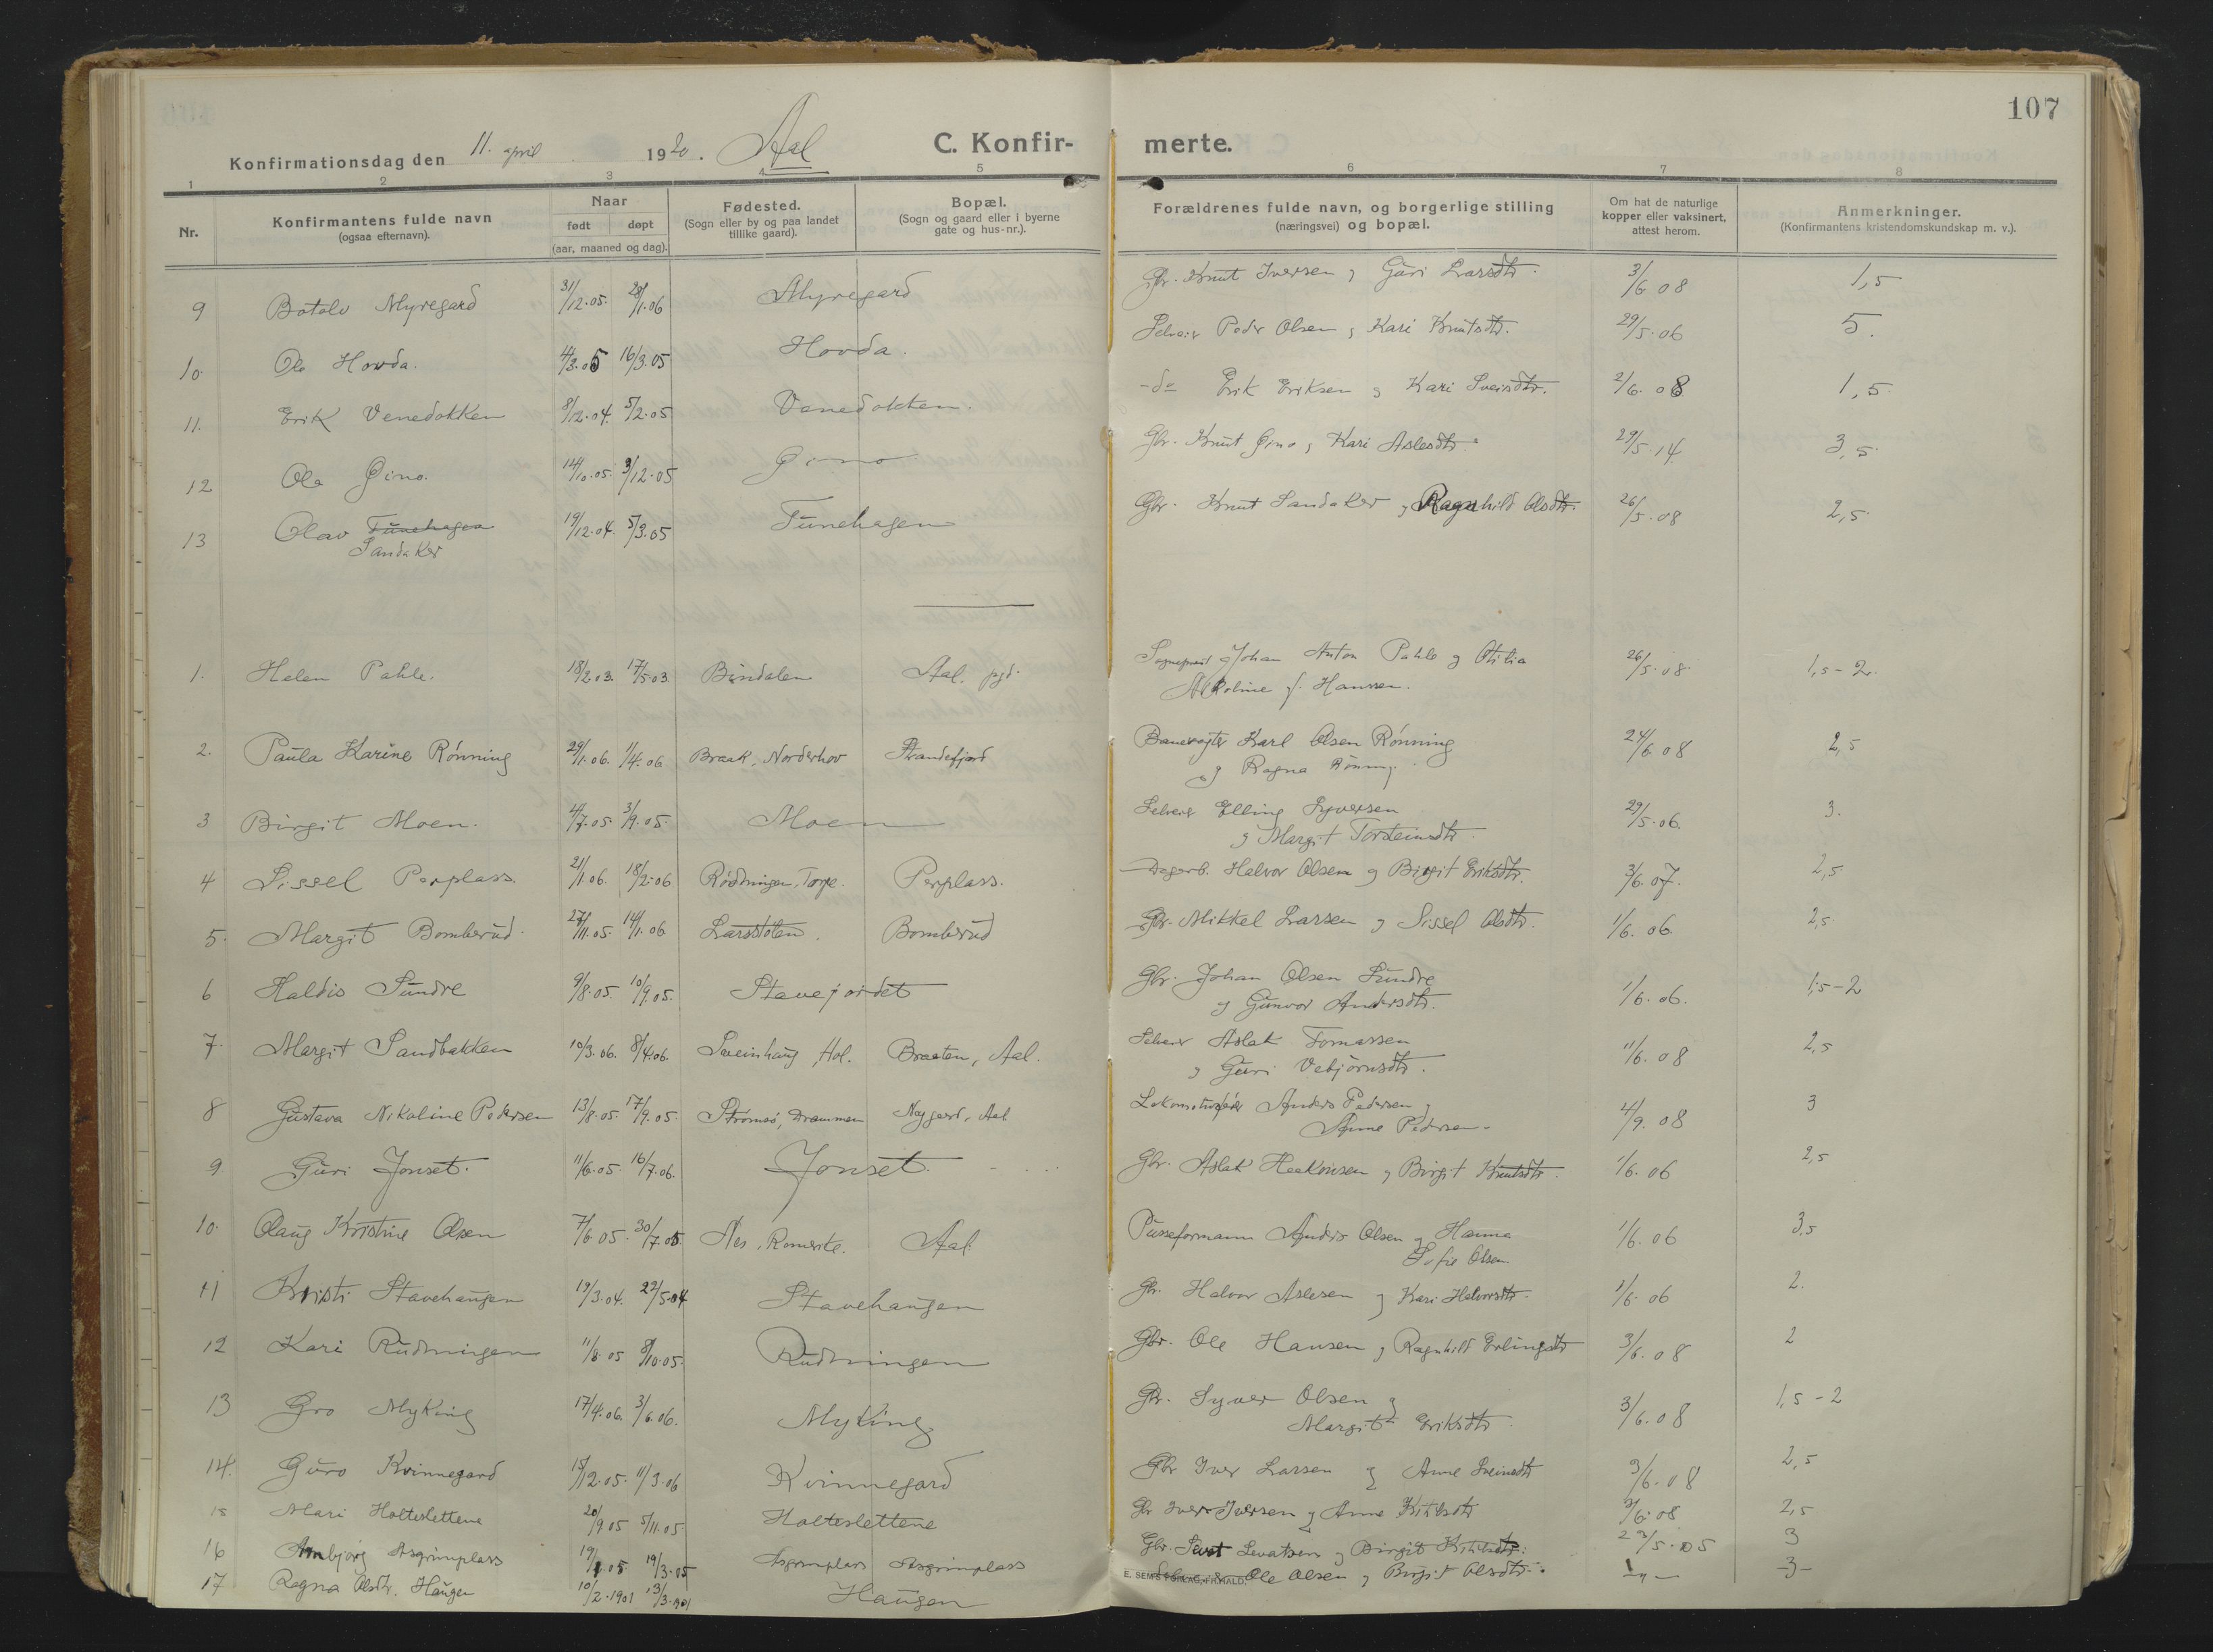 107
Konfirmationsdag den 11. april 1920. Aal C. Konfirmerte.
1 2 3 4 5 6 7 8
Nr. Konfirmantens fulde navn (ogsaa efternavn). Naar født døpt (aar, maaned og dag). Fødested. (Sogn eller by og paa landet tillike gaard). Bopæl. (Sogn og gaard eller i byerne gate og hus-nr.). Forældrenes fulde navn, og borgerlige stilling (næringsvei) og bopæl. Om hat de naturlige kopper eller vaksinert, attest herom. Anmerkninger. (Konfirmantens kristendomskundskap m. v.).
9 Botolv Myregard 31/12.05. 28/1.06 Myregard Gbr. Knut Iversen og Guri Larsdtr. 3/6 08 1,5
10 Ole Hovda. 4/3.05 16/3.05 Hovda. Selveier Peder Olsen og Kari Knutsdtr. 29/5.06 5.
11. Erik Venedokken 8/12.04. 5/2.05 Venedokken. -do Erik Eriksen og Kari Sveinsdtr. 2/6.08 1,5.
12 Ole Gino. 14/10.05. 3/12.05 Gino Gbr. Knut Gino og Kari Aslesdtr. 29/5.14 3,5.
13 Olav Tunehagen 19/12.04. 5/3.05 Tunehagen Gbr. Knut Sandaker og Ragnhild Olsdtr. 26/5.08 2,5.
Sandaker
1. Helen Pahle. 18/2.03. 17/5.03. Bindalen Aal. pgd. Sogneprest Johan Anton Pahle og Otilia 26/5.08 1,5-2.
Nikoline f. Hanssen.
2. Paula Karine Rønning 29/1.06. 1/4.06 Braak, Norderhov Strandefjord Banevogter Karl Olsen Rønning 24/6.08 2,5
og Ragna Rønning.
3 Birgit Moen. 4/7.05 3/9.05. Moen Selveier Elling Syversen 29/5.06. 3.
og Margit Torsteinsdtr.
4 Sissel Perplass. 21/1.06. 18/2.06 Rødningen, Torpe. Perplass. Dagarb. Halvor Olsen og Birgit Eriksdtr. 3/6.07. 2,5
5. Margit Bomberud. 27/11.05. 14/1.06 Larsstølen. Bomberud Gbr. Mikkel Larsen og Sissel Olsdtr. 1/6.06. 2,5
6 Haldis Sundre 9/8.05. 10/9.05. Stavejordet Gbr. Johan Olsen Sundre 1/6.06. 1,5-2
og Gunvor Andersdtr.
7. Margit Sandbakken 10/3.06. 8/4.06. Sveinhaug, Hol. Braaten, Aal. Selveier Aslak Tomassen 11/6.08 2,5
og Guri Vebjørnsdtr.
8 Gustava Nikoline Pedersen 13/8.05. 17/9.05. Strømsø, Drammen Nygard, Aal Lokomotivfører Anders Pedersen og 4/9.08 3
Anne Pedersen-
9 Guri Jonset. 11/6.05. 16/7.06. Jonset. Gbr. Aslak Haakonsen og Birgit Knutsdtr. 1/6.06 2,5
10. Olaug Kristine Olsen 7/6.05. 30/7.05 Nes, Romerike. Aal. Pusseformann Anders Olsen og Hanna 1/6.06 3,5
Sofie Olsen
11 Kristi Stavehaugen 19/3.04. 22/5.04 Stavehaugen Gbr. Halvor Aslesen og Kari Halvorsdtr. 1/6.06 2.
12 Kari Rudningen 11/8.05 8/10.05. Rudningen Gbr. Ole Hansen og Ragnhild Erlingsdtr 3/6.08 2
13 Gro Myking 17/4.06. 3/6.06. Myking Gbr. Syver Olsen og 3/6.08 1,5-2
Margit Eriksdtr.
14. Guro Kvinnegard 15/12.05. 11/3.06 Kvinnegard Gbr Iver Larsen og Anne Sveinsdtr 3/6.08 2,5
15 Mari Holteslettene 20/9 05 5/11.05. Holteslettene Gbr Iver Iversen og Anne Kittilsdtr 3/6.08 2,5
16 Arnbjørg Asgrimplass 19/1.05. 19/3.05 Asgrimplass Asgrimplass Gbr. Sevat Sevatsen og Birgit Kittilsdtr. 29/5.05 3
17 Ragna Olsdtr. Haugen 10/2.1901 13/3.1901 Haugen Ole Olsen og Birgit Olsdtr. -"- -3-
E. SEM'S FORLAG, FR.HALD.